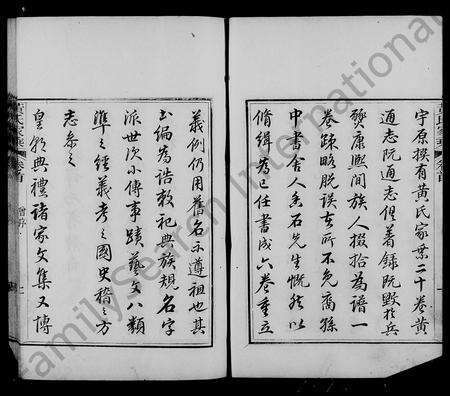 宇原撰有黃氏家乘二十卷黃
通志阮通志俱著錄阮毀於兵
燹康熙間族人掇拾為譜一
卷疎略脫誤在所不免裔孫
中書舍人立石先生慨然以
脩緝為己任書成六卷重立
義例仍用舊名示遵祖也其
出編為誥敕祀典族規名字
派世次小傳事蹟藝文八類
準之經義考之國史稽之方
志參之
皇朝典禮諸家文集又博
黃氏家乘
卷首
FamilySearch International